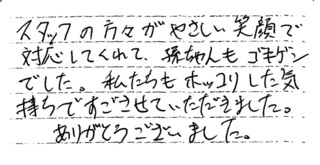 スタッフの方々がやさしい笑顔で
対応してくれて、孫ちゃんもゴキゲン
でした。私たちもホッコリした気
持ちですごさせていただきました。
ありがとうございました。